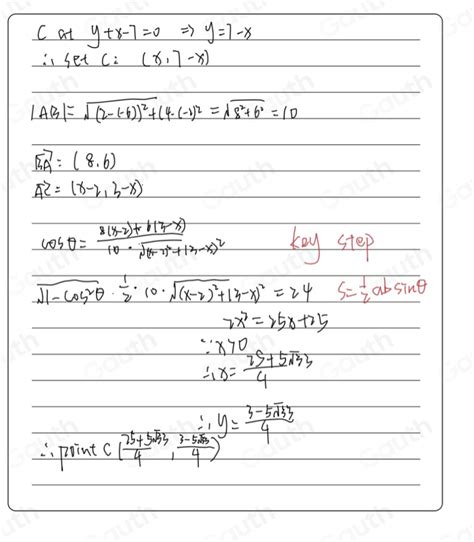 C at y+x-7=0 ⇒ y=7-x
∴ set C: (x,7-x)
|AB|=√(2-(-6))²+(4-(-2))² = √8²+6² =10
BA: (8,6)
AC = (x-2, 3-x)
cosθ = 8(x-2)+6(3-x) / 10·√(x-2)²+(3-x)²
key step
√1-cos²θ · 1/2 · 10 · √(x-2)²+(3-x)² = 24 S=1/2 ab sinθ
2x²=25x+25
∵ x>0
∴ x= 25+5√33 / 4
∴ y= 3-5√33 / 4
∴ point C (25+5√33 / 4, 3-5√33 / 4)